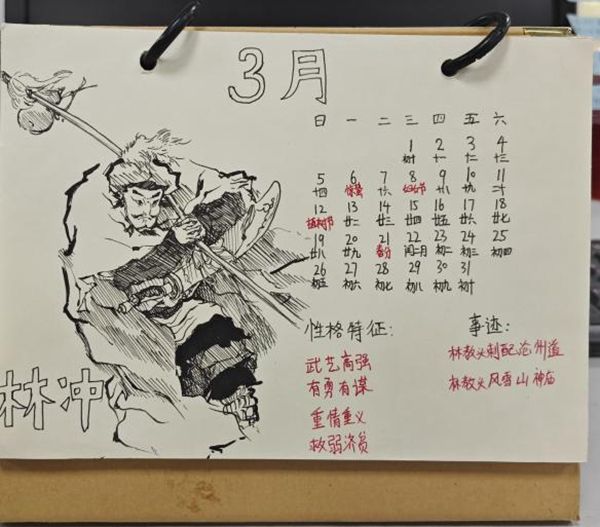 3月
日 一 二 三 四 五 六
1 2 3 4
初十 十一 十二 十三
5 6 7 8 9 10 11
十四 惊蛰 十六 妇女节 十八 十九 二十
12 13 14 15 16 17 18
植树节 廿二 廿三 廿四 廿五 廿六 廿七
19 20 21 22 23 24 25
廿八 廿九 春分 闰二月 初二 初三 初四
26 27 28 29 30 31
初五 初六 初七 初八 初九 初十
性格特征:
武艺高强
有勇有谋
重情重义
救弱济贫
事迹:
林教头刺配沧州道
林教头风雪山神庙
林冲